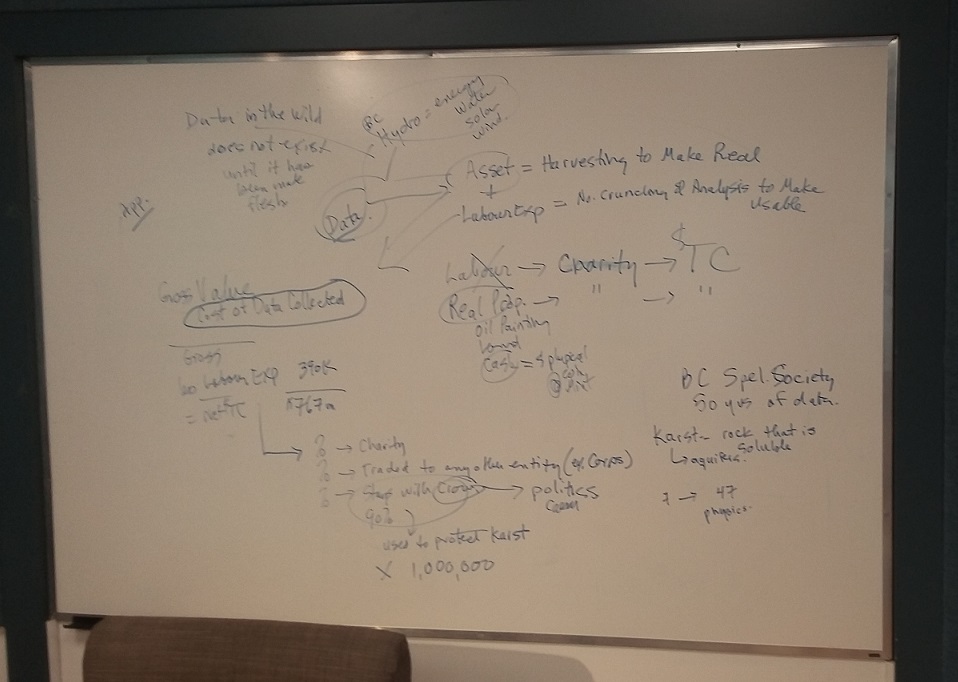 Data in the wild
does not exist
until it has
been made
flesh
BC
Hydro = energy
water
solar
wind.
App.
Data.
Asset = Harvesting to Make Real
+
Labour Exp = No. Crunching & Analysis to Make
Usable
Labour → Charity → $TC
Real Prop. → " → "
Oil Painting
Land
Cash = $ physical
coin
Gross Value
Cost of Data Collected
Gross
Labour Exp 390K
= Net TC
% → Charity
% → Traded to any other entity (ex. Corps)
% → Stays with Crown → politics
90%
used to protect Karst
X 1,000,000
BC Spel. Society
50 yrs of data.
Karst - rock that is
soluble
↳ aquifers.
7 → 47
physics.